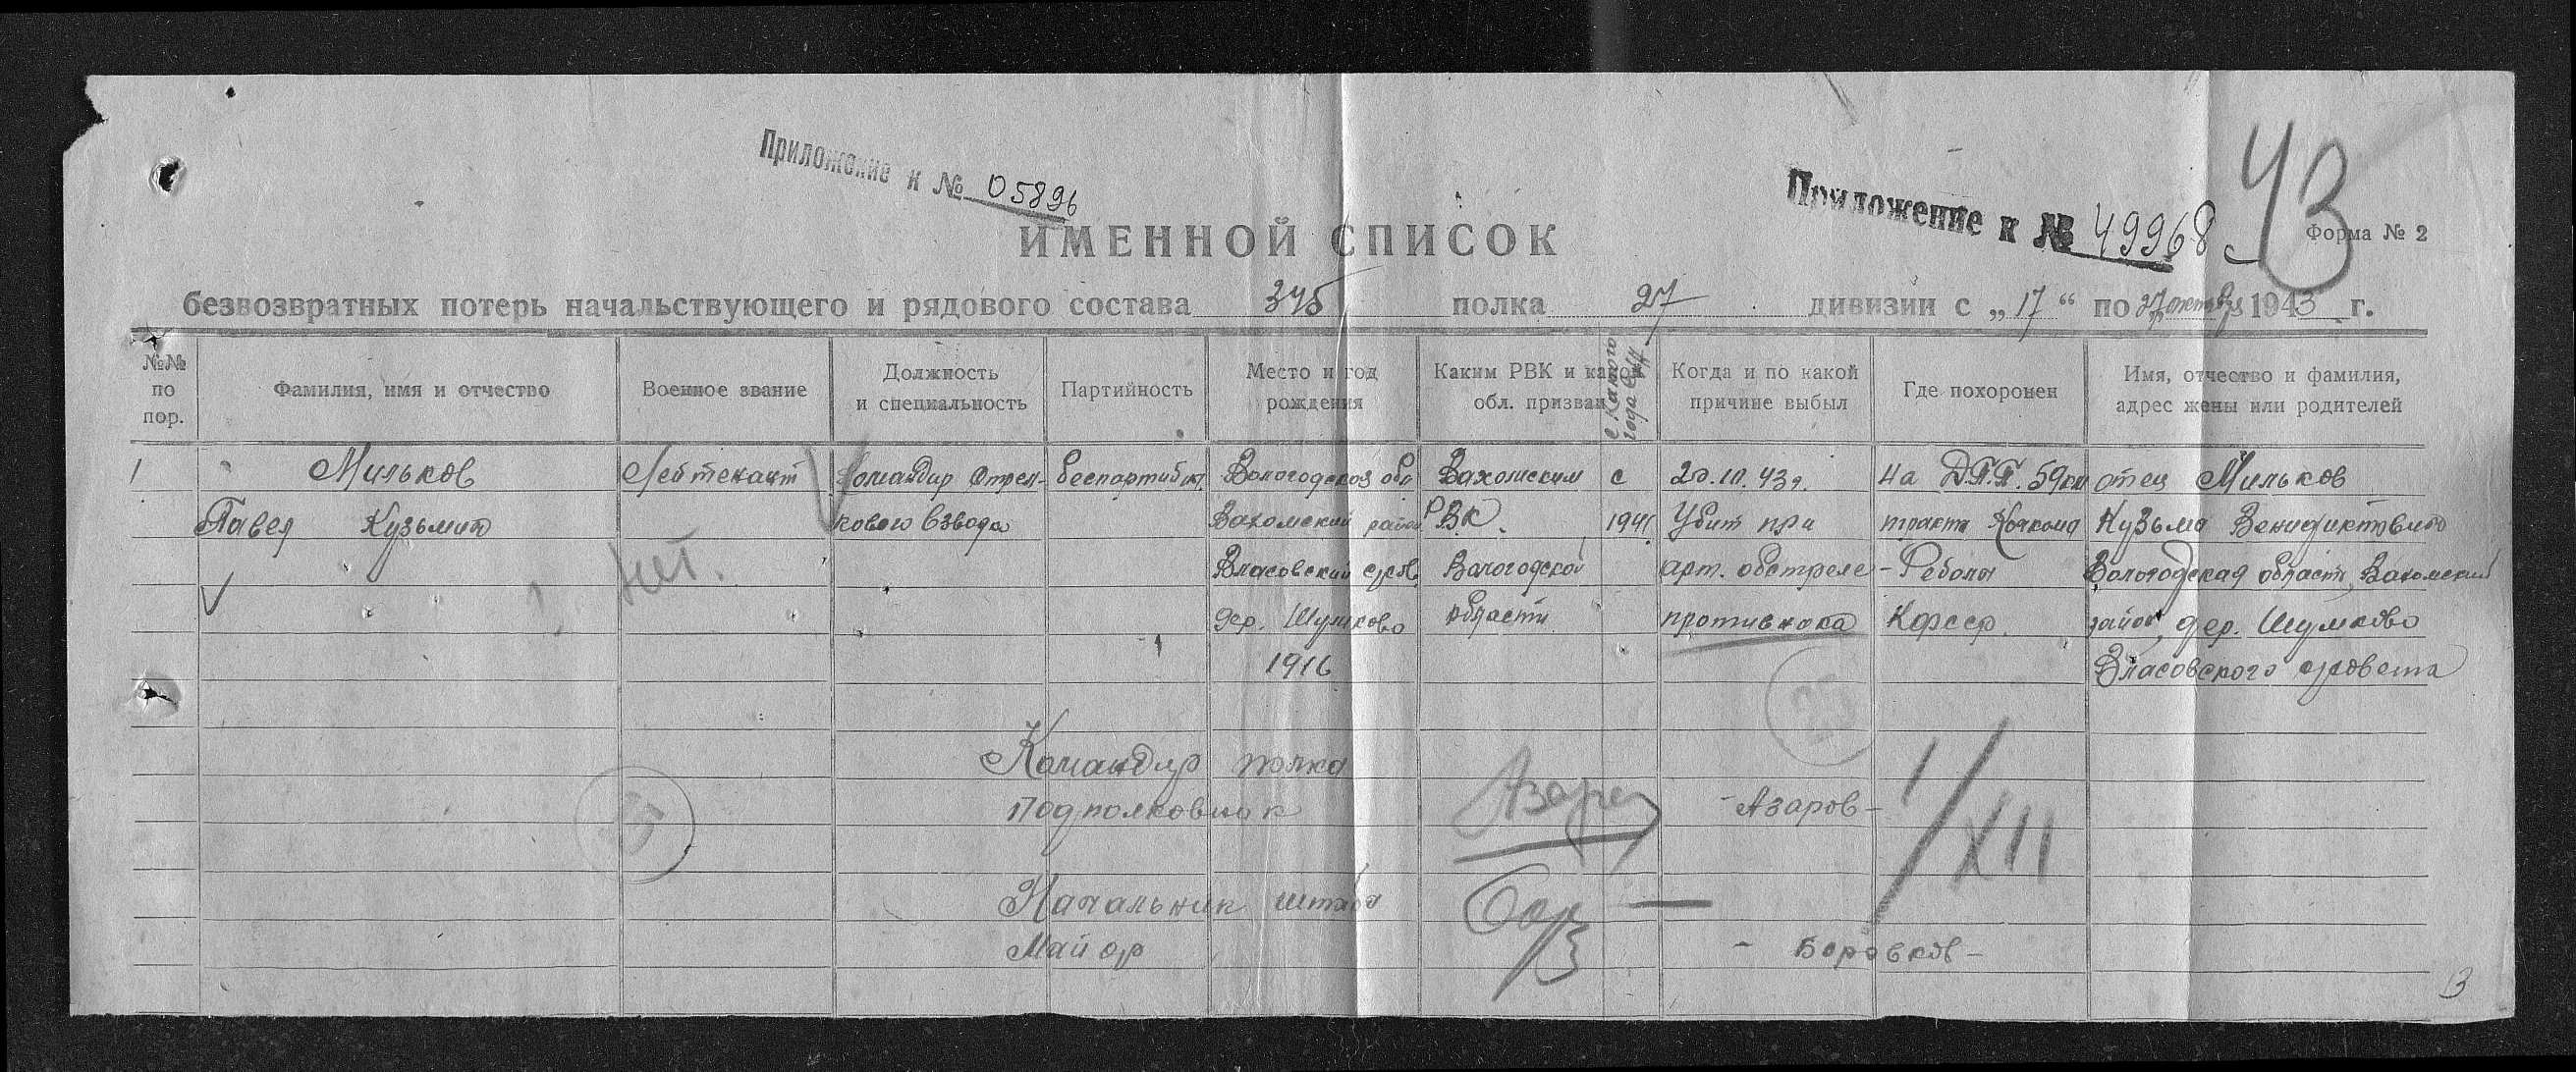 Приложение к № 05896
Приложение к № 49968
43
Форма № 2
ИМЕННОЙ СПИСОК
безвозвратных потерь начальствующего и рядового состава 345 полка 27 дивизии с „17“ по 27 октября 1943 г.
№№ по пор.
Фамилия, имя и отчество
Военное звание
Должность и специальность
Партийность
Место и год рождения
Каким РВК и какой обл. призван
С какого года в
Когда и по какой причине выбыл
Где похоронен
Имя, отчество и фамилия, адрес жены или родителей
1 Мильков Лейтенант Командир Стрел- беспартийн. Вологодская обл Вахомским с 20.10.43г. На Д.П.П. 59км отец Мильков
Павел Кузьмич кового взвода Вахомский район РВК. 1941 Убит при тракта Кочкома Кузьма Венидиктович
нет. Власовский с/сов. Вологодской арт. обстреле - Реболы Вологодская область, Вахомский
дер. Шумково области противника КФССР. район, дер. Шумково
1916 Власовского с/совета
Командир полка
Подполковник Азаров - Азаров -
1/XII
Начальник штаба
Майор - Боровков -
13